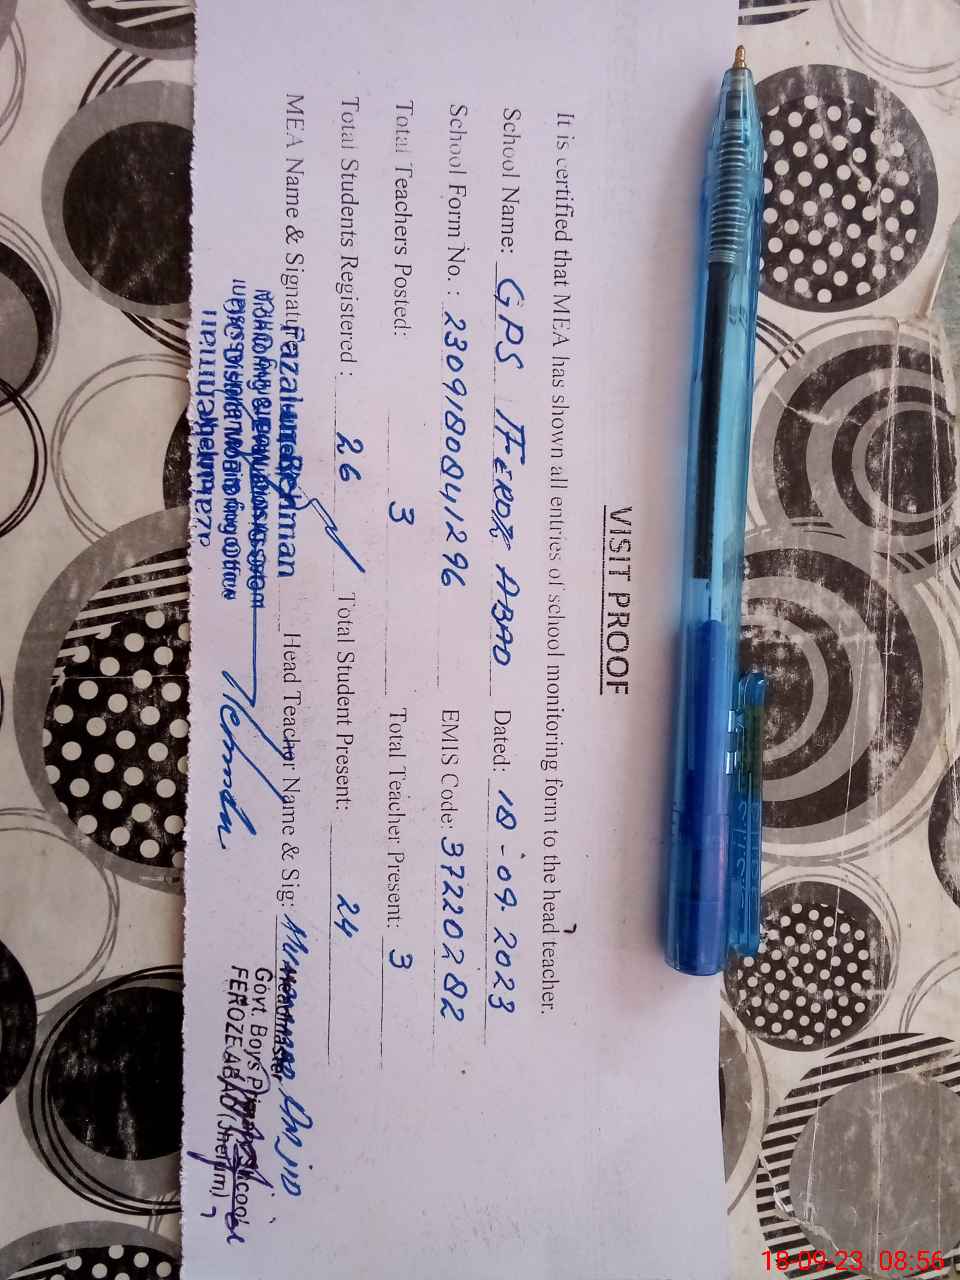 VISIT PROOF
It is certified that MEA has shown all entries of school monitoring form to the head teacher.
School Name: GPS FEROZE ABAD Dated: 18-09-2023
School Form No.: 23091808041296 EMIS Code: 37220282
Total Teachers Posted: 3 Total Teacher Present: 3
Total Students Registered: 26 Total Student Present: 24
MEA Name & Signature Fazal Rehman Head Teacher Name & Sig: Muhammad Amjid
Headmaster
Govt. Boys Primary School
FEROZE ABAD (Jhelum)
18-09-23 08:56